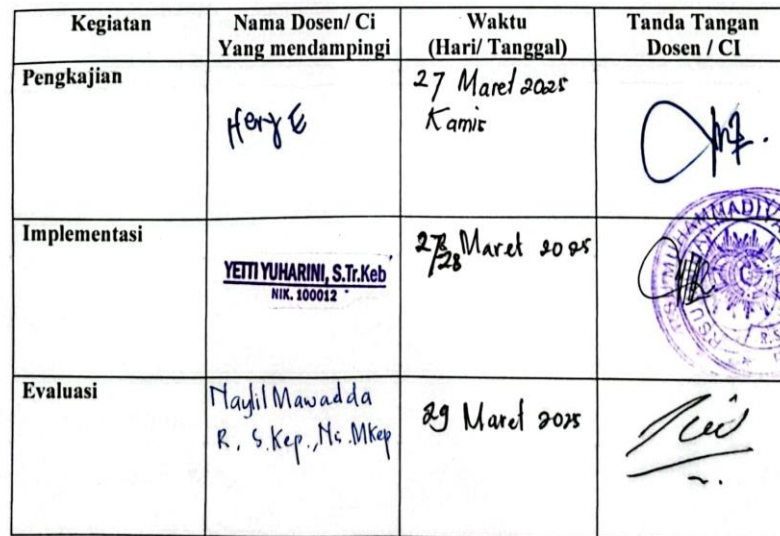 Kegiatan
Nama Dosen/ Ci
Yang mendampingi
Waktu
(Hari/ Tanggal)
Tanda Tangan
Dosen / CI
Pengkajian
Hery E
27 Maret 2025
Kamis
Implementasi
YETTI YUHARINI, S.Tr.Keb
NIK. 100012
27/28 Maret 2025
MUHAMMADIYA
RSU
Evaluasi
Naylil Mawadda
R, S.Kep., Ns. MKep
29 Maret 2025